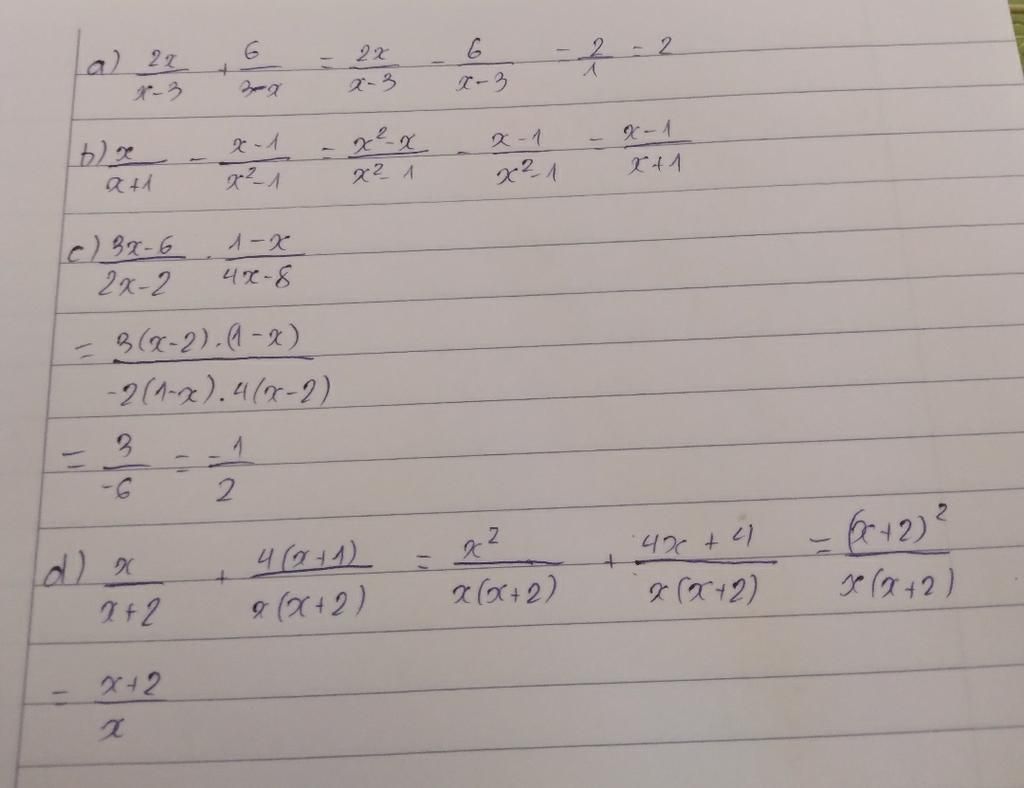 a) 2x/(x-3) + 6/(3-x) = 2x/(x-3) - 6/(x-3) = 2/1 = 2
b) x/(x+1) - (x-1)/(x²-1) = (x²-x)/(x²-1) - (x-1)/(x²-1) = (x-1)/(x+1)
c) (3x-6)/(2x-2) . (1-x)/(4x-8)
= 3(x-2).(1-x)/(-2(1-x).4(x-2))
= 3/-6 = -1/2
d) x/(x+2) + 4(x+1)/(x(x+2)) = x²/(x(x+2)) + (4x+4)/(x(x+2)) = (x+2)²/(x(x+2))
= (x+2)/x